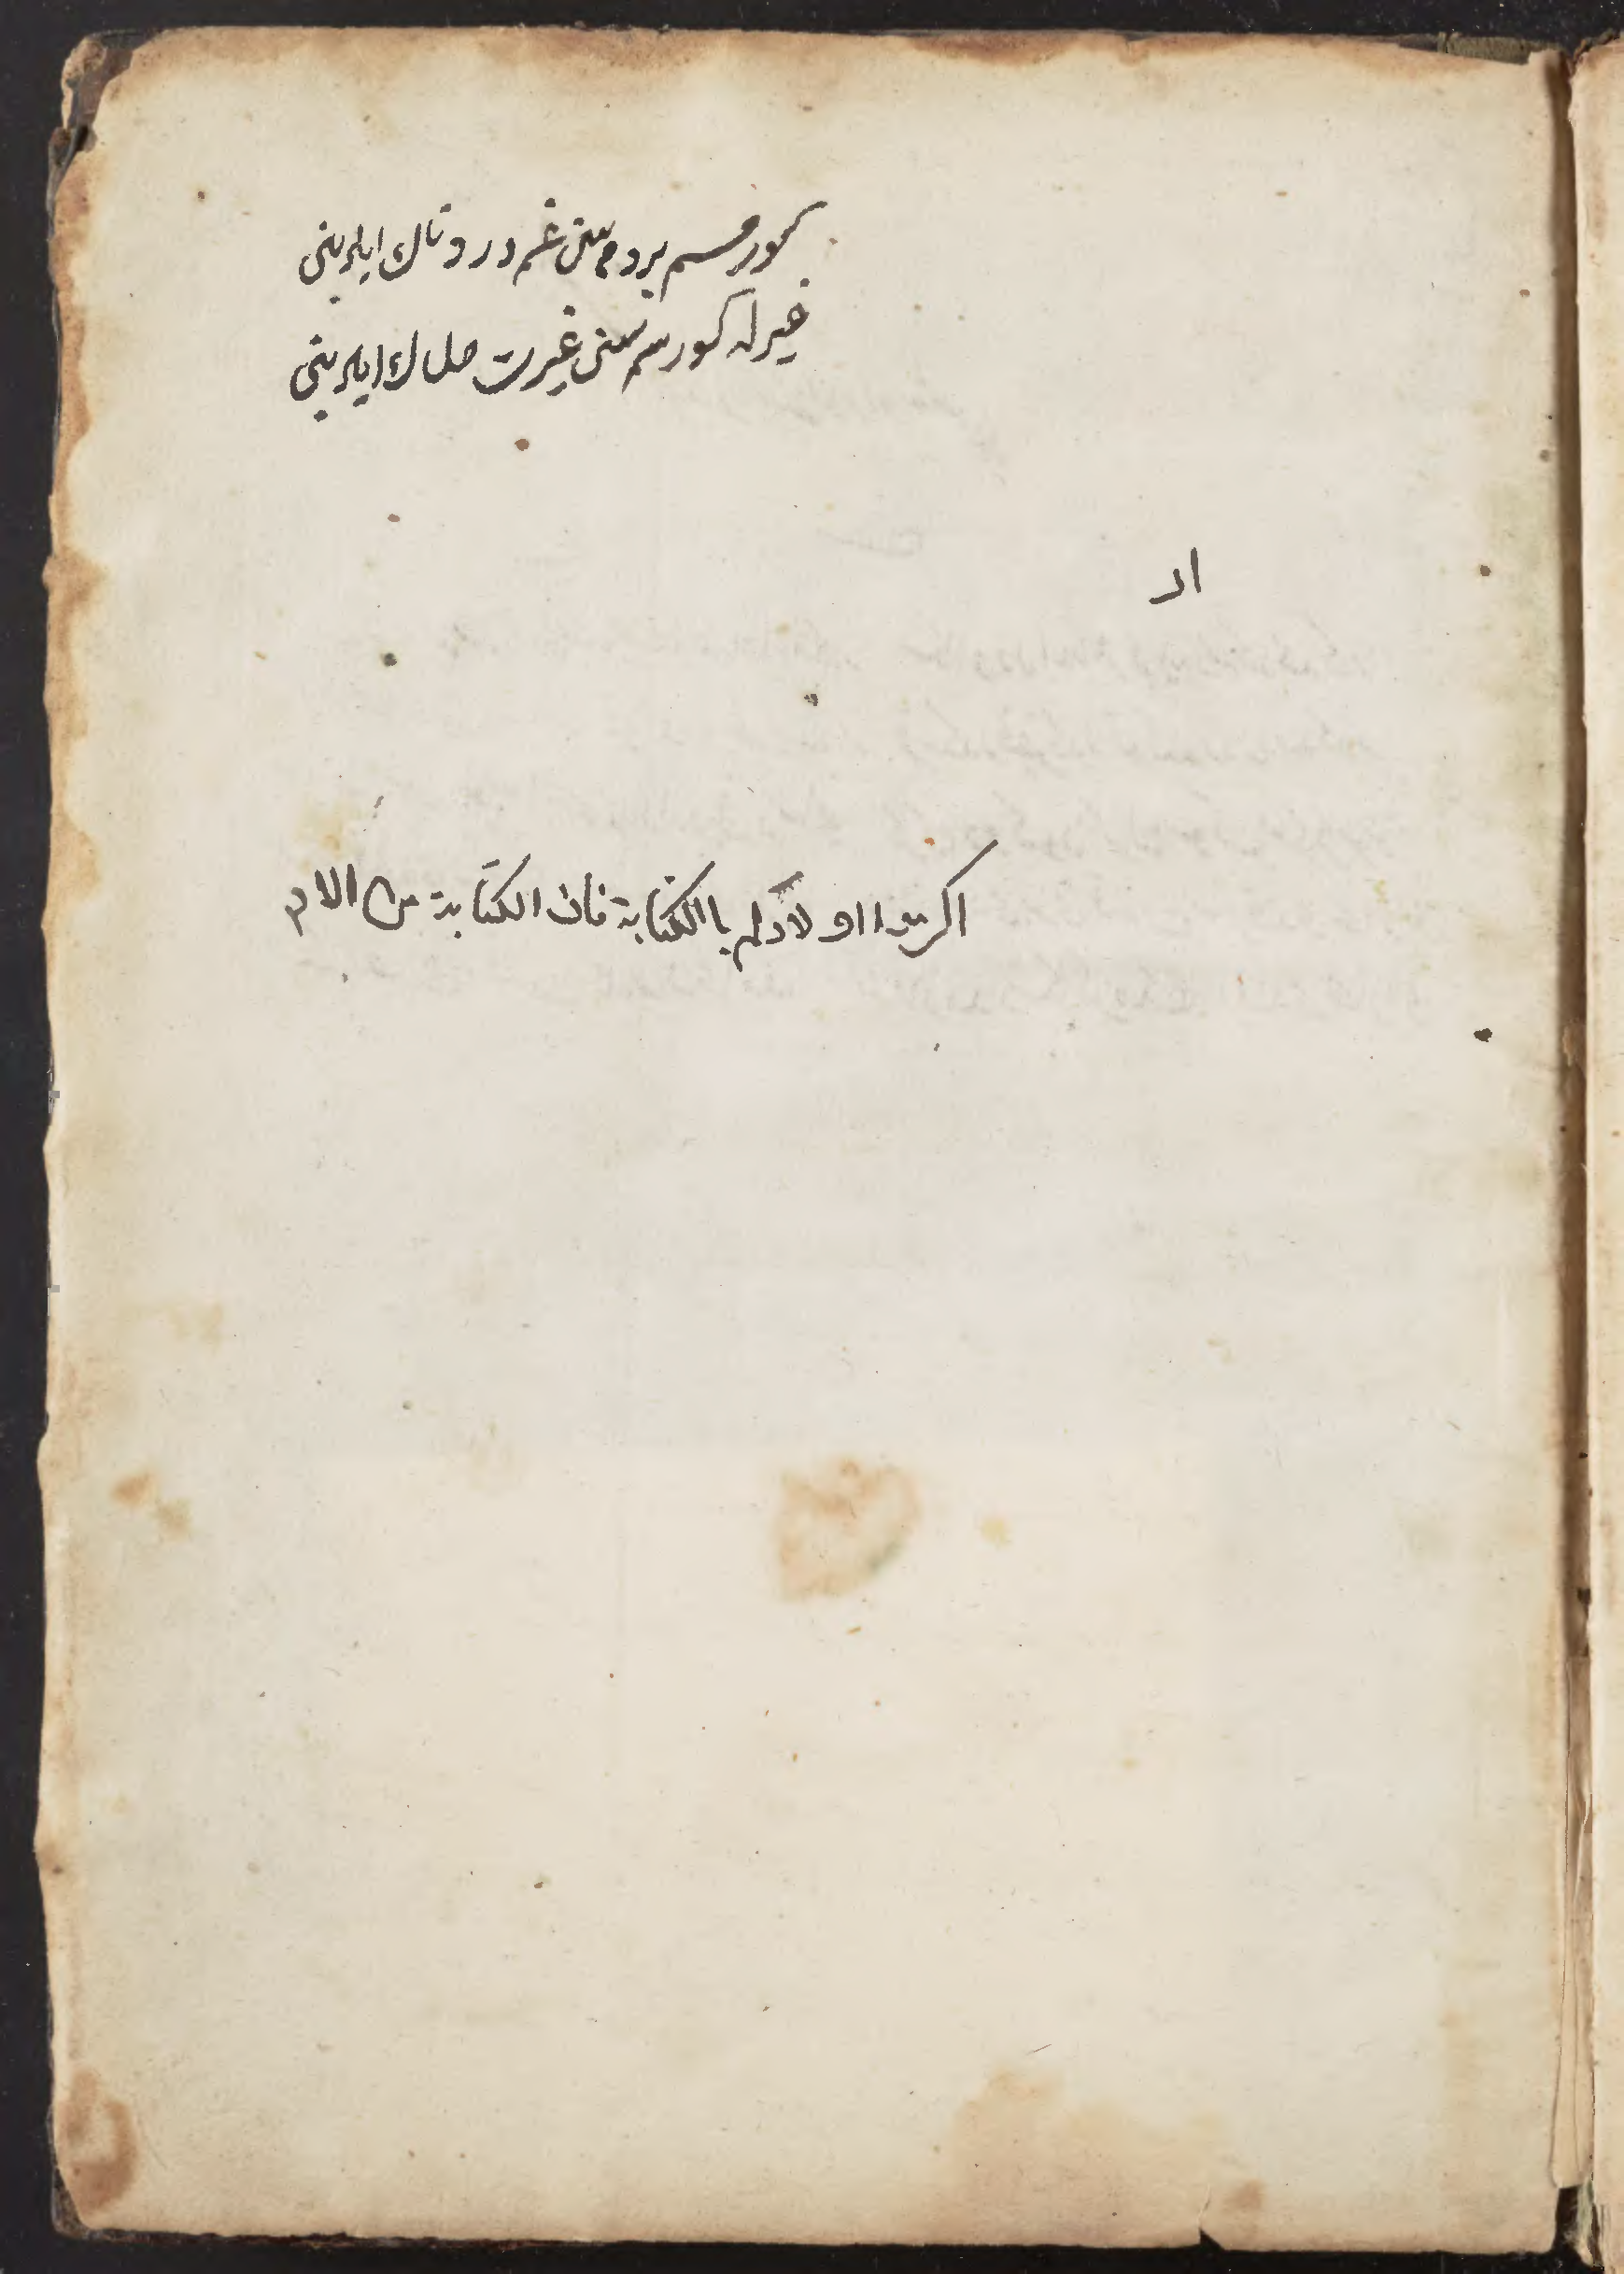 كورمسم بر دم سنى غم دردناك ايلر بنى
غيرله كورسم سنى غيرت هلاك ايلر بنى
ار
اكرموا اولادكم باالكتابة فان الكتابة من الا